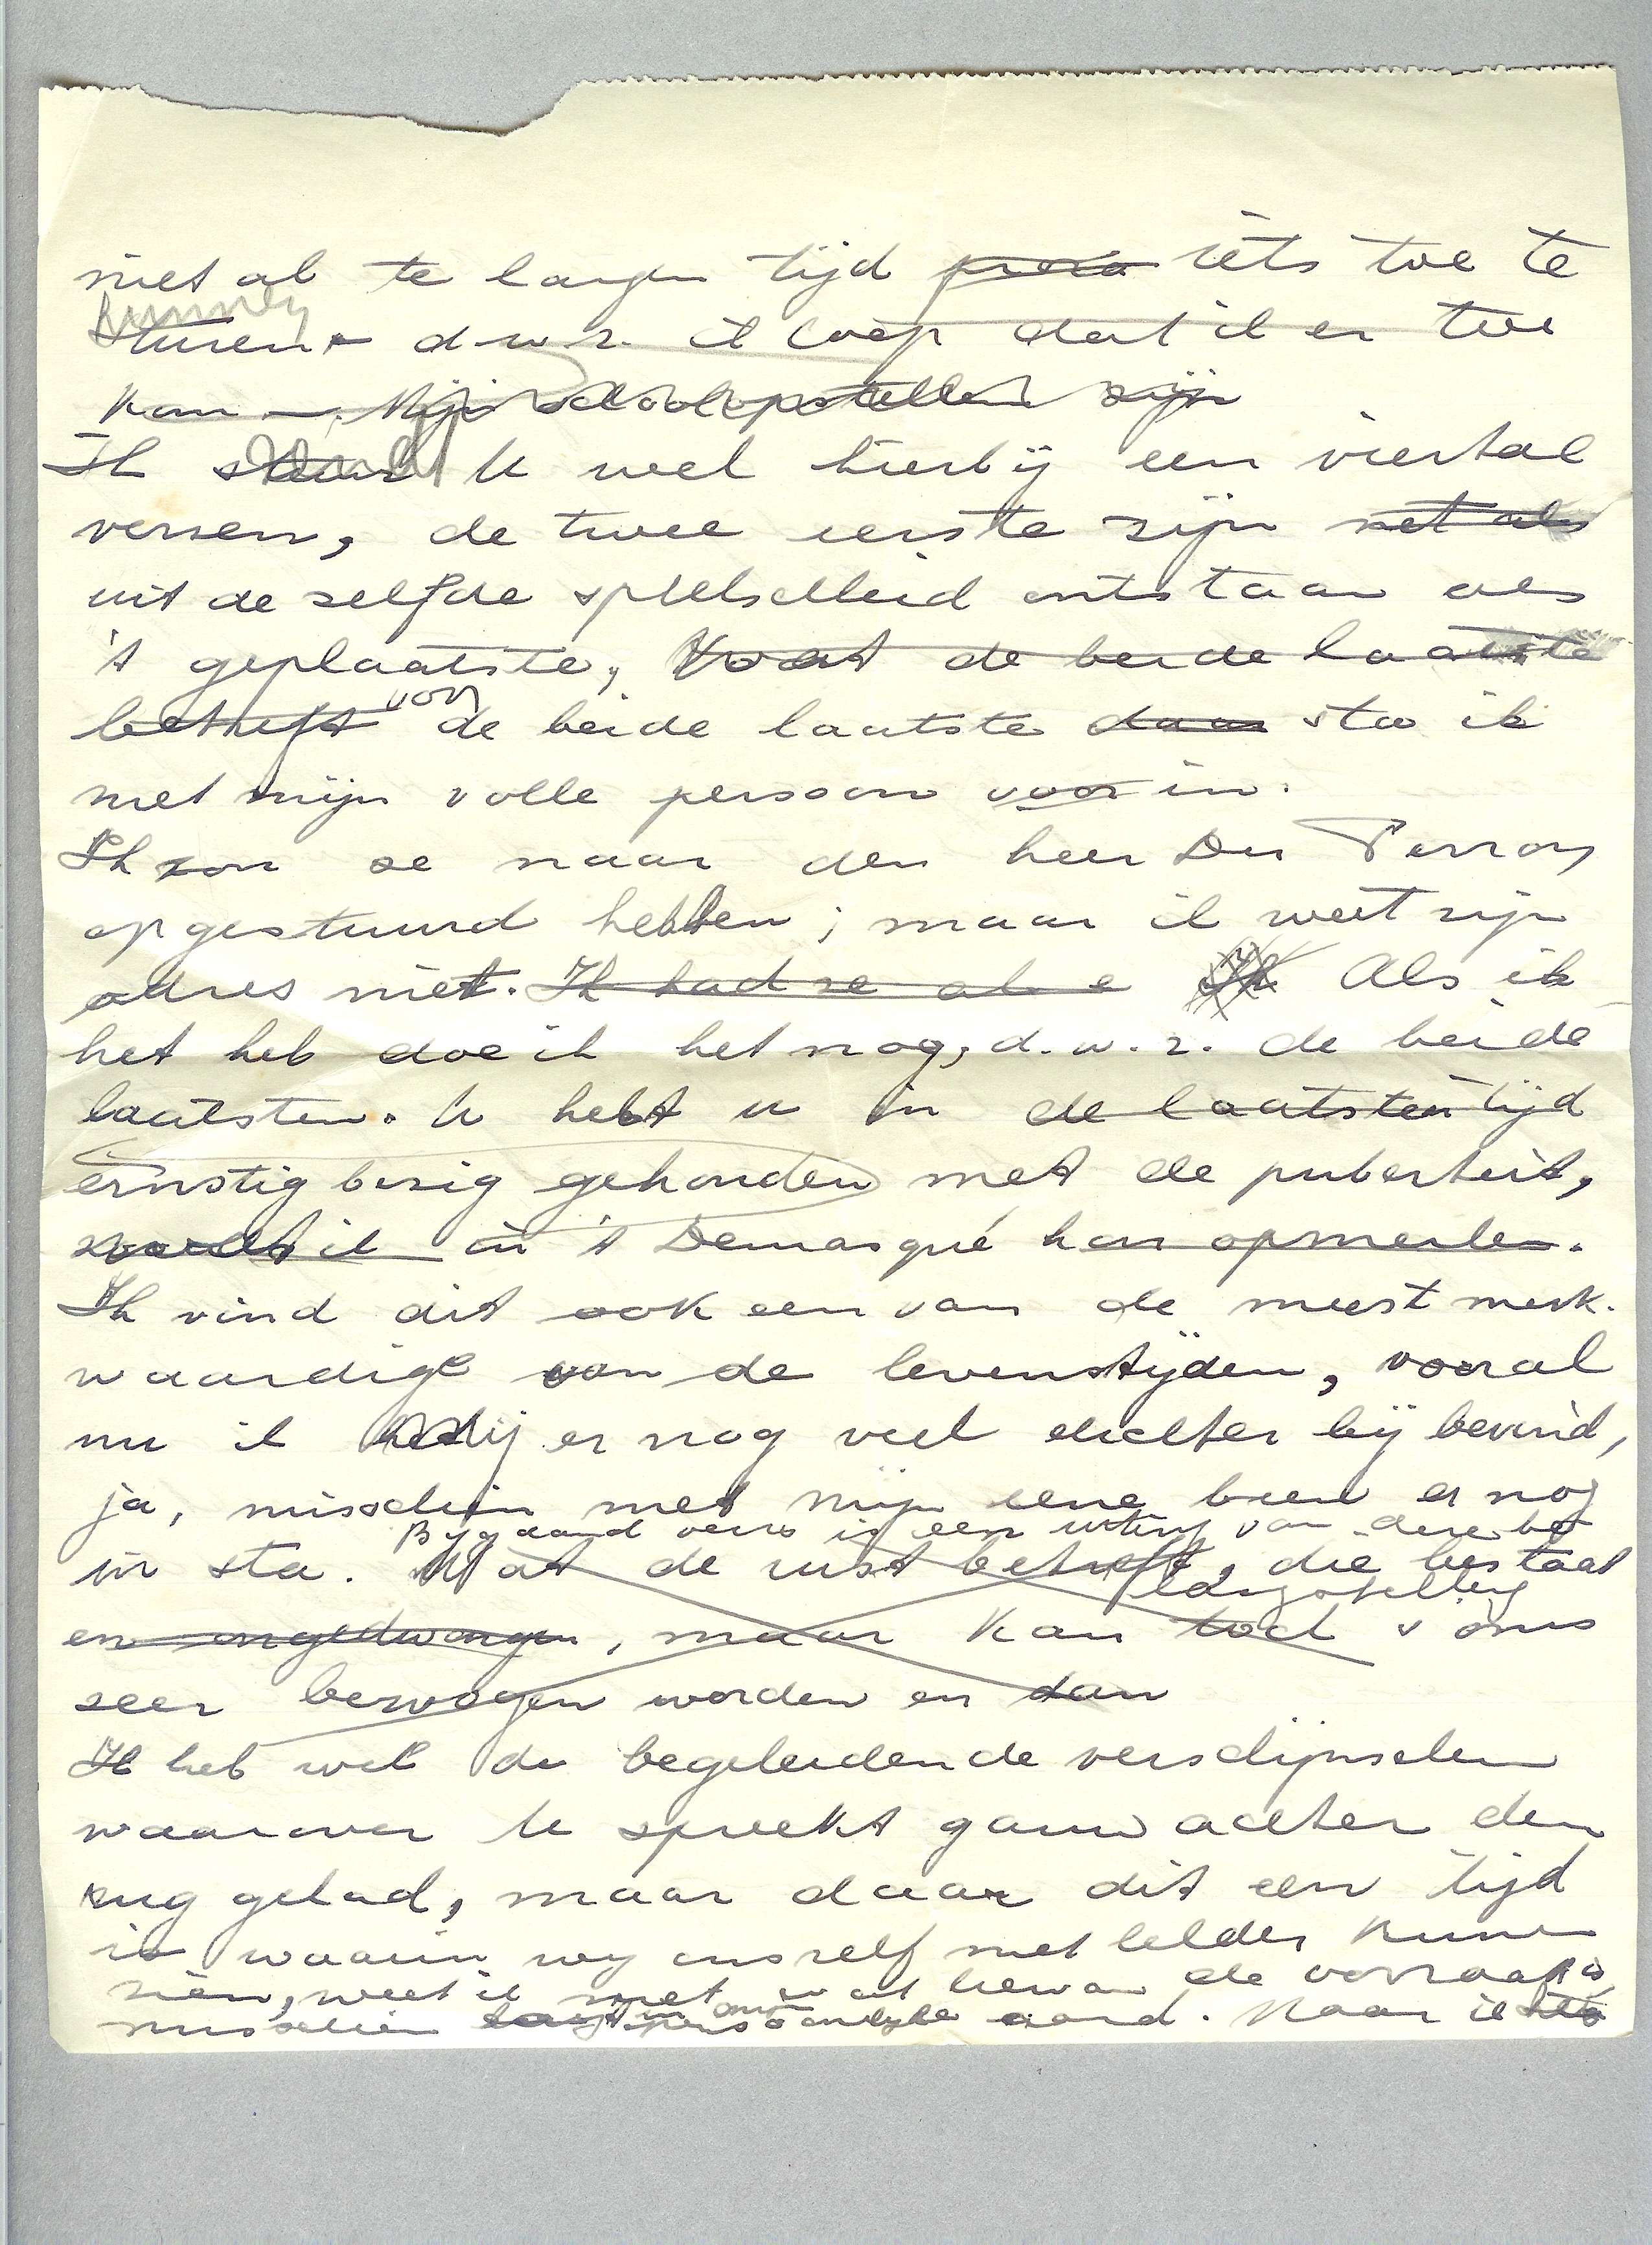 niet al te langen tijd proza iets toe te
kunnen
sturen - d.w.z. ik hoop dat ik er toe
kan —. Mijn schoolopstellen zijn
Ik stuur U wel hierbij een viertal
verzen, de twee eerste zijn net als
uit de zelfde speelschheid ontstaan als
't geplaatste, Wat de beide laatste
betreft voor de beide laatste daar sta ik
met mijn volle persoon voor in.
Ik zou ze naar den heer Du Perron
opgestuurd hebben; maar ik weet zijn
adres niet. Ik had ze al e Ik Als ik
het heb doe ik het nog, d.w.z. de beide
laatsten. U hebt u in de laatsten tijd
ernstig bezig gehouden met de puberteit,
zooals ik in 't Demasqué kon opmerken.
Ik vind dit ook een van de meest merk-
waardige van de levenstijden, vooral
nu ik mij er nog veel dichter bij bevind,
ja, misschien met mijn eene been er nog
Bijgaand vers is een uiting van deze
in sta. Wat de rust betreft, die bestaat
en ongedwongen, maar kan toch soms
zeer bewogen worden en dan
Ik heb wel de begeleidende verschijnselen
waarover U spreekt gauw achter den
rug gehad, maar daar dit een tijd
is waarin wij onszelf niet helder kunnen
zien, weet ik niet wat hiervan de oorzaak is,
misschien persoonlijke aard. Maar ik